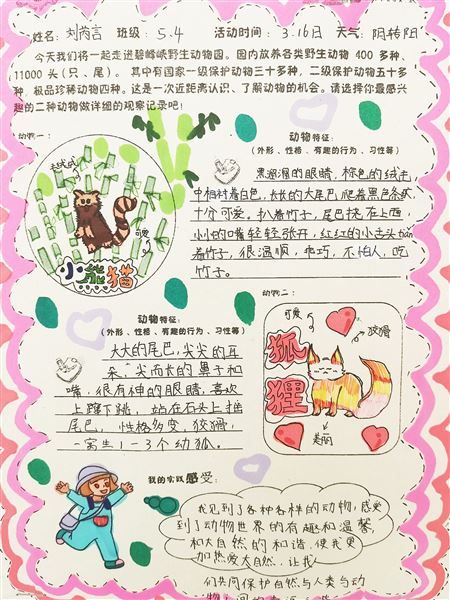 姓名：刘芮言 班级：5.4 活动时间：3.16日 天气：阴转阳
今天我们将一起走进碧峰峡野生动物园。园内放养各类野生动物 400 多种、
11000 头（只、尾）。其中有国家一级保护动物三十多种，二级保护动物五十多
种，极品珍稀动物四种。这是一次近距离认识、了解动物的机会。请选择你最感兴
趣的二种动物做详细的观察记录吧！
动物一：
可爱
小熊猫
动物特征：
（外形、性格、有趣的行为、习性等）
黑溜溜的眼睛，棕色的绒毛
中相衬着白色，长长的大尾巴爬着黑色条纹，
十分可爱。扒着竹子，尾巴挠在上面，
小小的嘴轻轻张开，红红的小舌头
着竹子，很温顺，乖巧，不怕人，吃
竹子。
动物特征：
（外形、性格、有趣的行为、习性等）
大大的尾巴，尖尖的耳
朵，尖而长的鼻子和
嘴，很有神的眼睛，喜欢
上蹿下跳，站在石头上抽
尾巴，性格多变，狡猾，
一窝生1-3个幼狐。
动物二：
可爱
狡猾
狐狸
美丽
我的实践感受：
我见到了各种各样的动物，感受
到了动物世界的有趣和温馨
和大自然的和谐，使我更
加热爱大自然，让我
们共同保护自然与人类与动